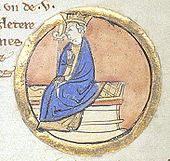 un de .v.
gletere
nes